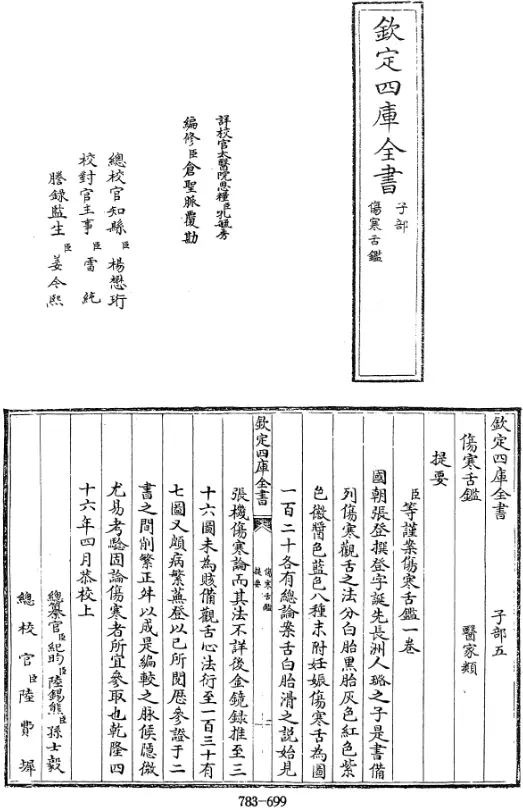 欽定四庫全書
子部
傷寒舌鑑
詳校官太醫院恩糧臣孔毓秀
編修臣倉聖脈覆勘
總校官知縣臣楊懋珩
校對官主事臣雷純
謄錄監生臣姜令熙
欽定四庫全書 子部五
傷寒舌鑑 醫家類
提要
臣等謹案傷寒舌鑑一卷
國朝張登撰登字誕先長洲人璐之子是書備
列傷寒觀舌之法分白胎黑胎灰色紅色紫
色黴醬色藍色八種末附妊娠傷寒舌為圖
一百二十各有總論案舌白胎滑之説始見
欽定四庫全書
傷寒舌鑑
提要
一
張機傷寒論而其法不詳後金鏡録推至三
十六圖未為賅備觀舌心法衍至一百三十有
七圖又頗病繁蕪登以己所閲歴參證于二
書之間削繁正舛以成是編較之脉候隱微
尤易考驗固論傷寒者所宜參取也乾隆四
十六年四月恭校上
總纂官臣紀昀臣陸錫熊臣孫士毅
總校官臣陸費墀
783-699